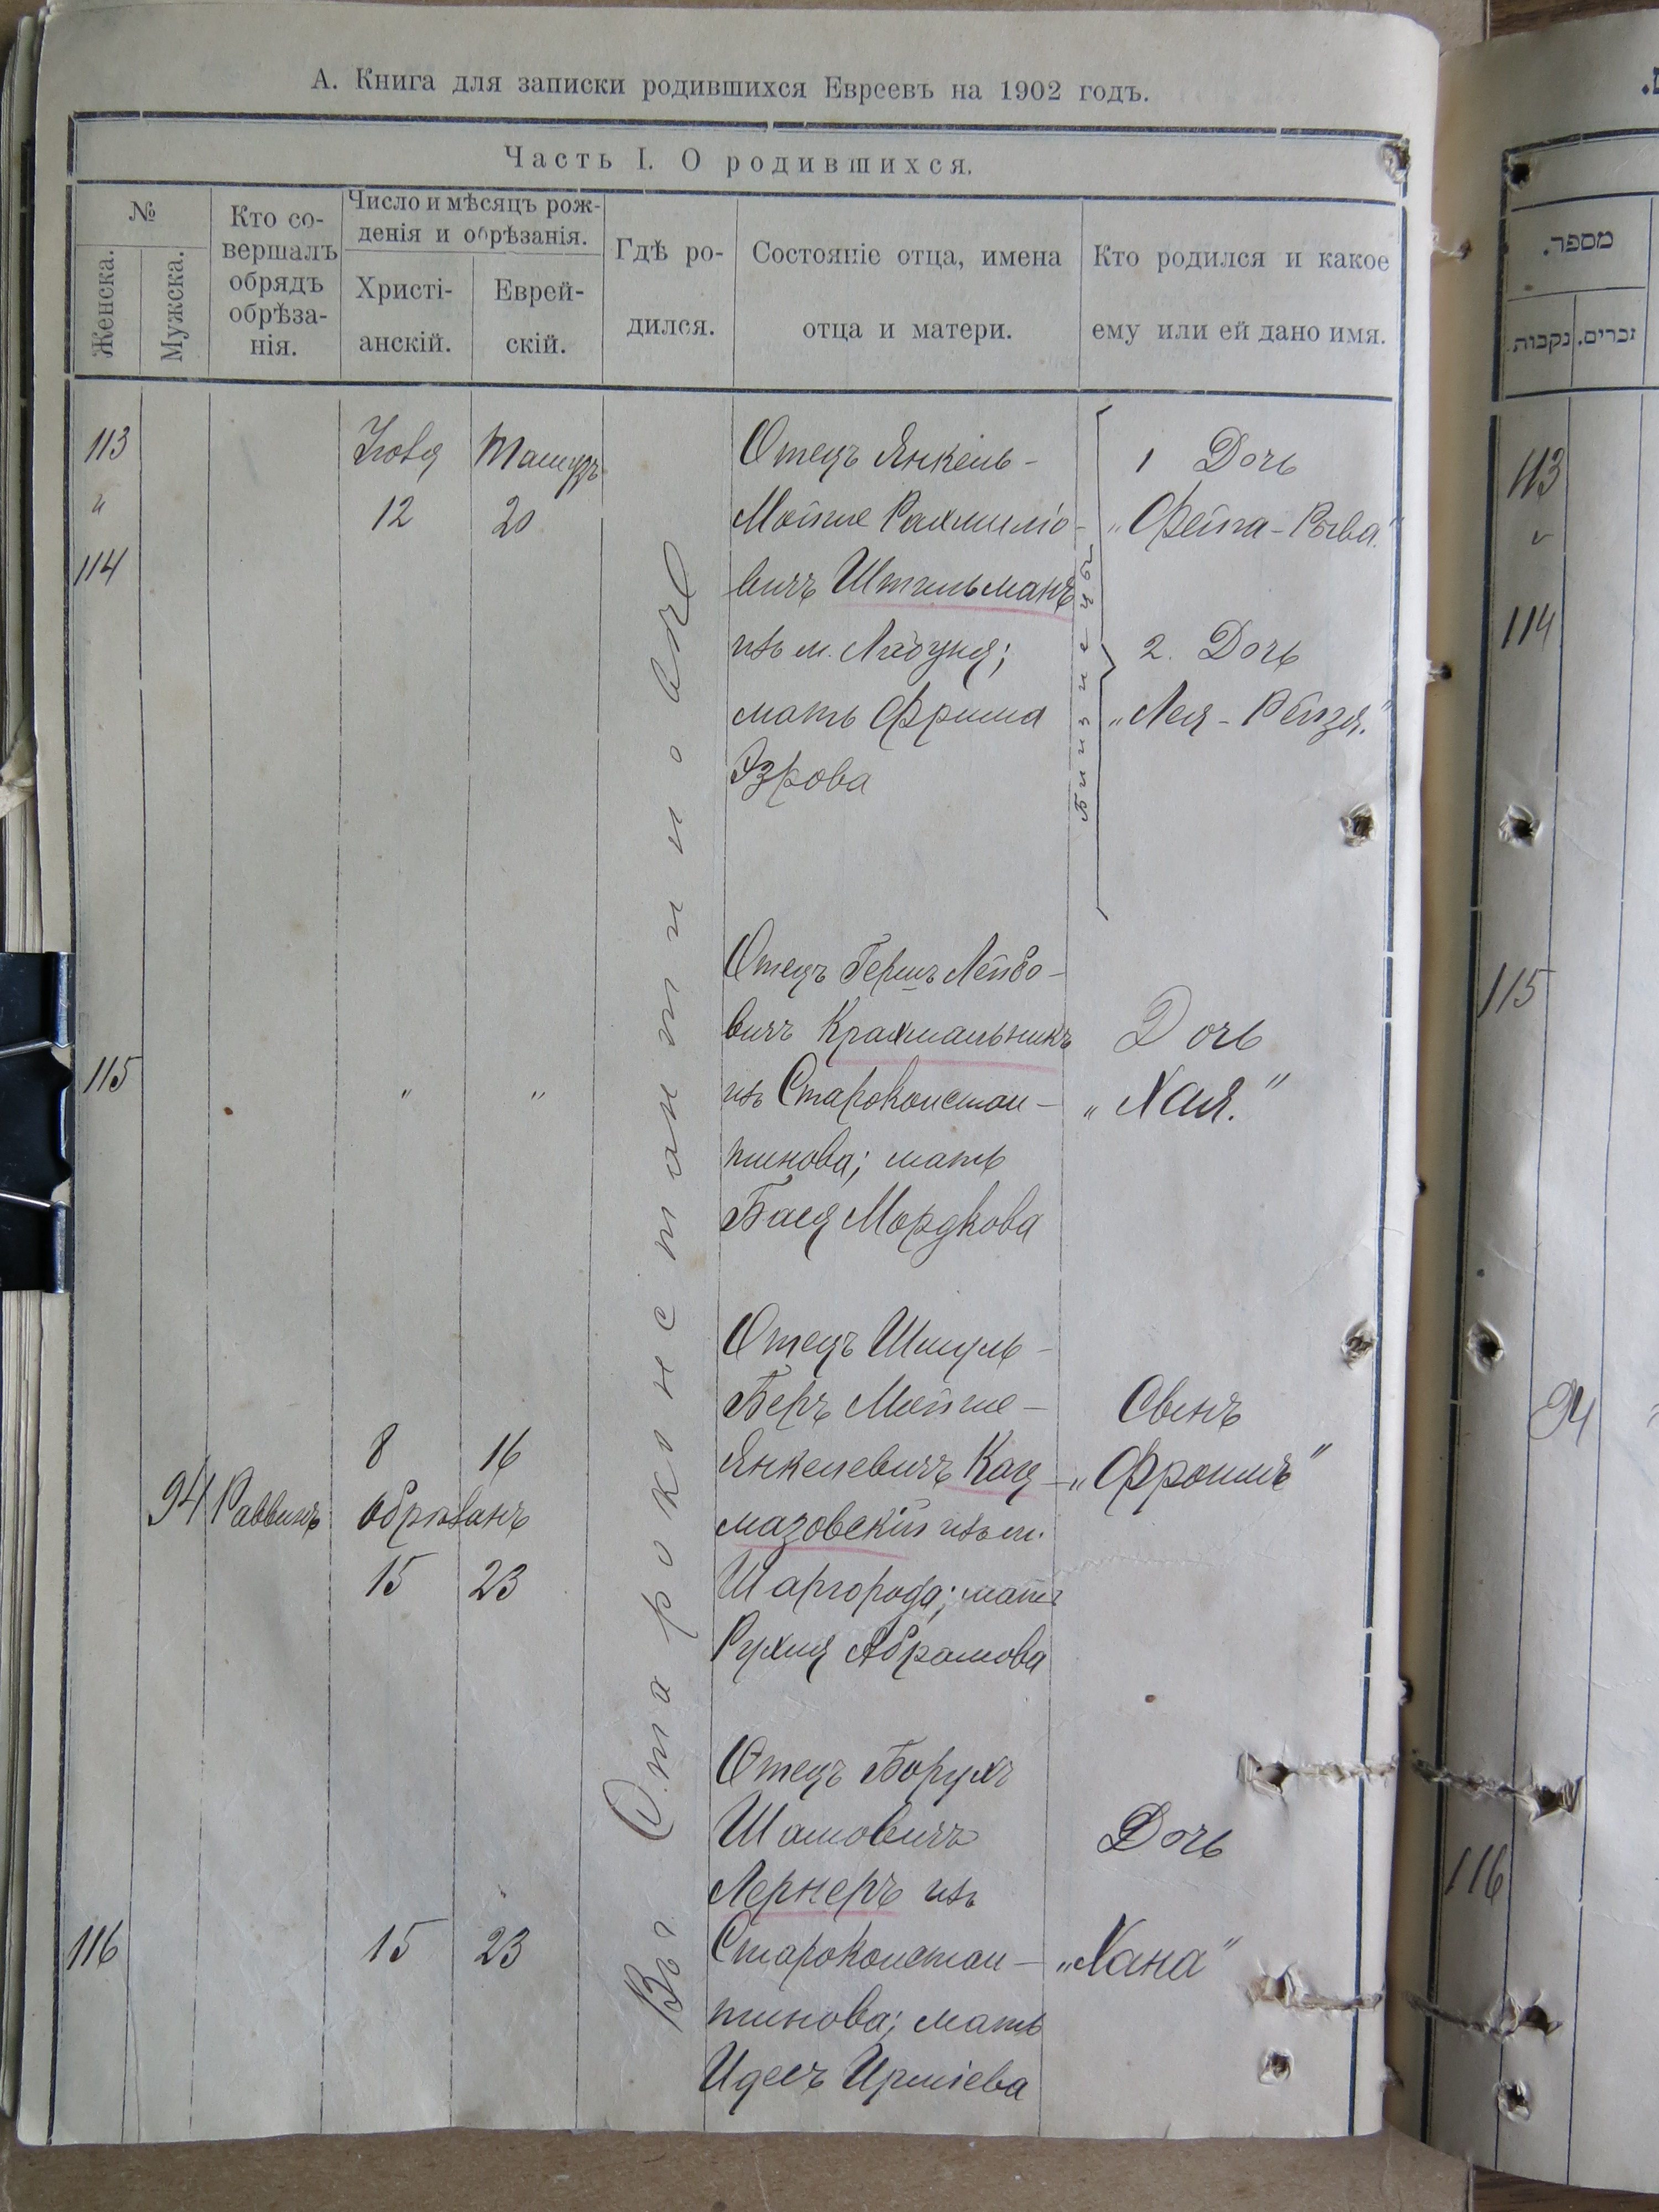 А. Книга для записки родившихся Евреевъ на 1902 годъ.
Часть I. О родившихся.
№
Женска.
Мужска.
Кто со-
вершалъ
обрядъ
обрѣза-
нія.
Число и мѣсяцъ рож-
денія и обрѣзанія.
Христі-
анскій.
Еврей-
скій.
Гдѣ ро-
дился.
Состояніе отца, имена
отца и матери.
Кто родился и какое
ему или ей дано имя.
113
"
114
Іюля
12
Тамузъ
20
Въ Староконстантиновѣ
Отецъ Янкель-
Мойше Рахмиліо-
вичъ Штильманъ
изъ м. Лабуня;
мать Фрима
Изрова
Близнецы
1 Дочь
„Фейга-Рыва."
2. Дочь
„Лея-Рейзя."
115
"
"
Отецъ Гершъ Лейбо-
вичъ Крахмальникъ
изъ Староконстан-
тинова; мать
Бася Мордкова
Дочь
„Хая."
94
Раввинъ
8
16
обрѣзанъ
15
23
Отецъ Шмуль-
Беръ Мойше-
Янкелевичъ Кац-
мазовскій изъ м.
Шаргорода; мать
Рухля Абрамова
Сынъ
„Фроимъ"
116
15
23
Отецъ Борухъ
Шамовичъ
Лернеръ изъ
Староконстан-
тинова; мать
Идесъ Ицміева
Дочь
„Хана"
מספר.
נקבות
זכרים.
113
114
115
94
116